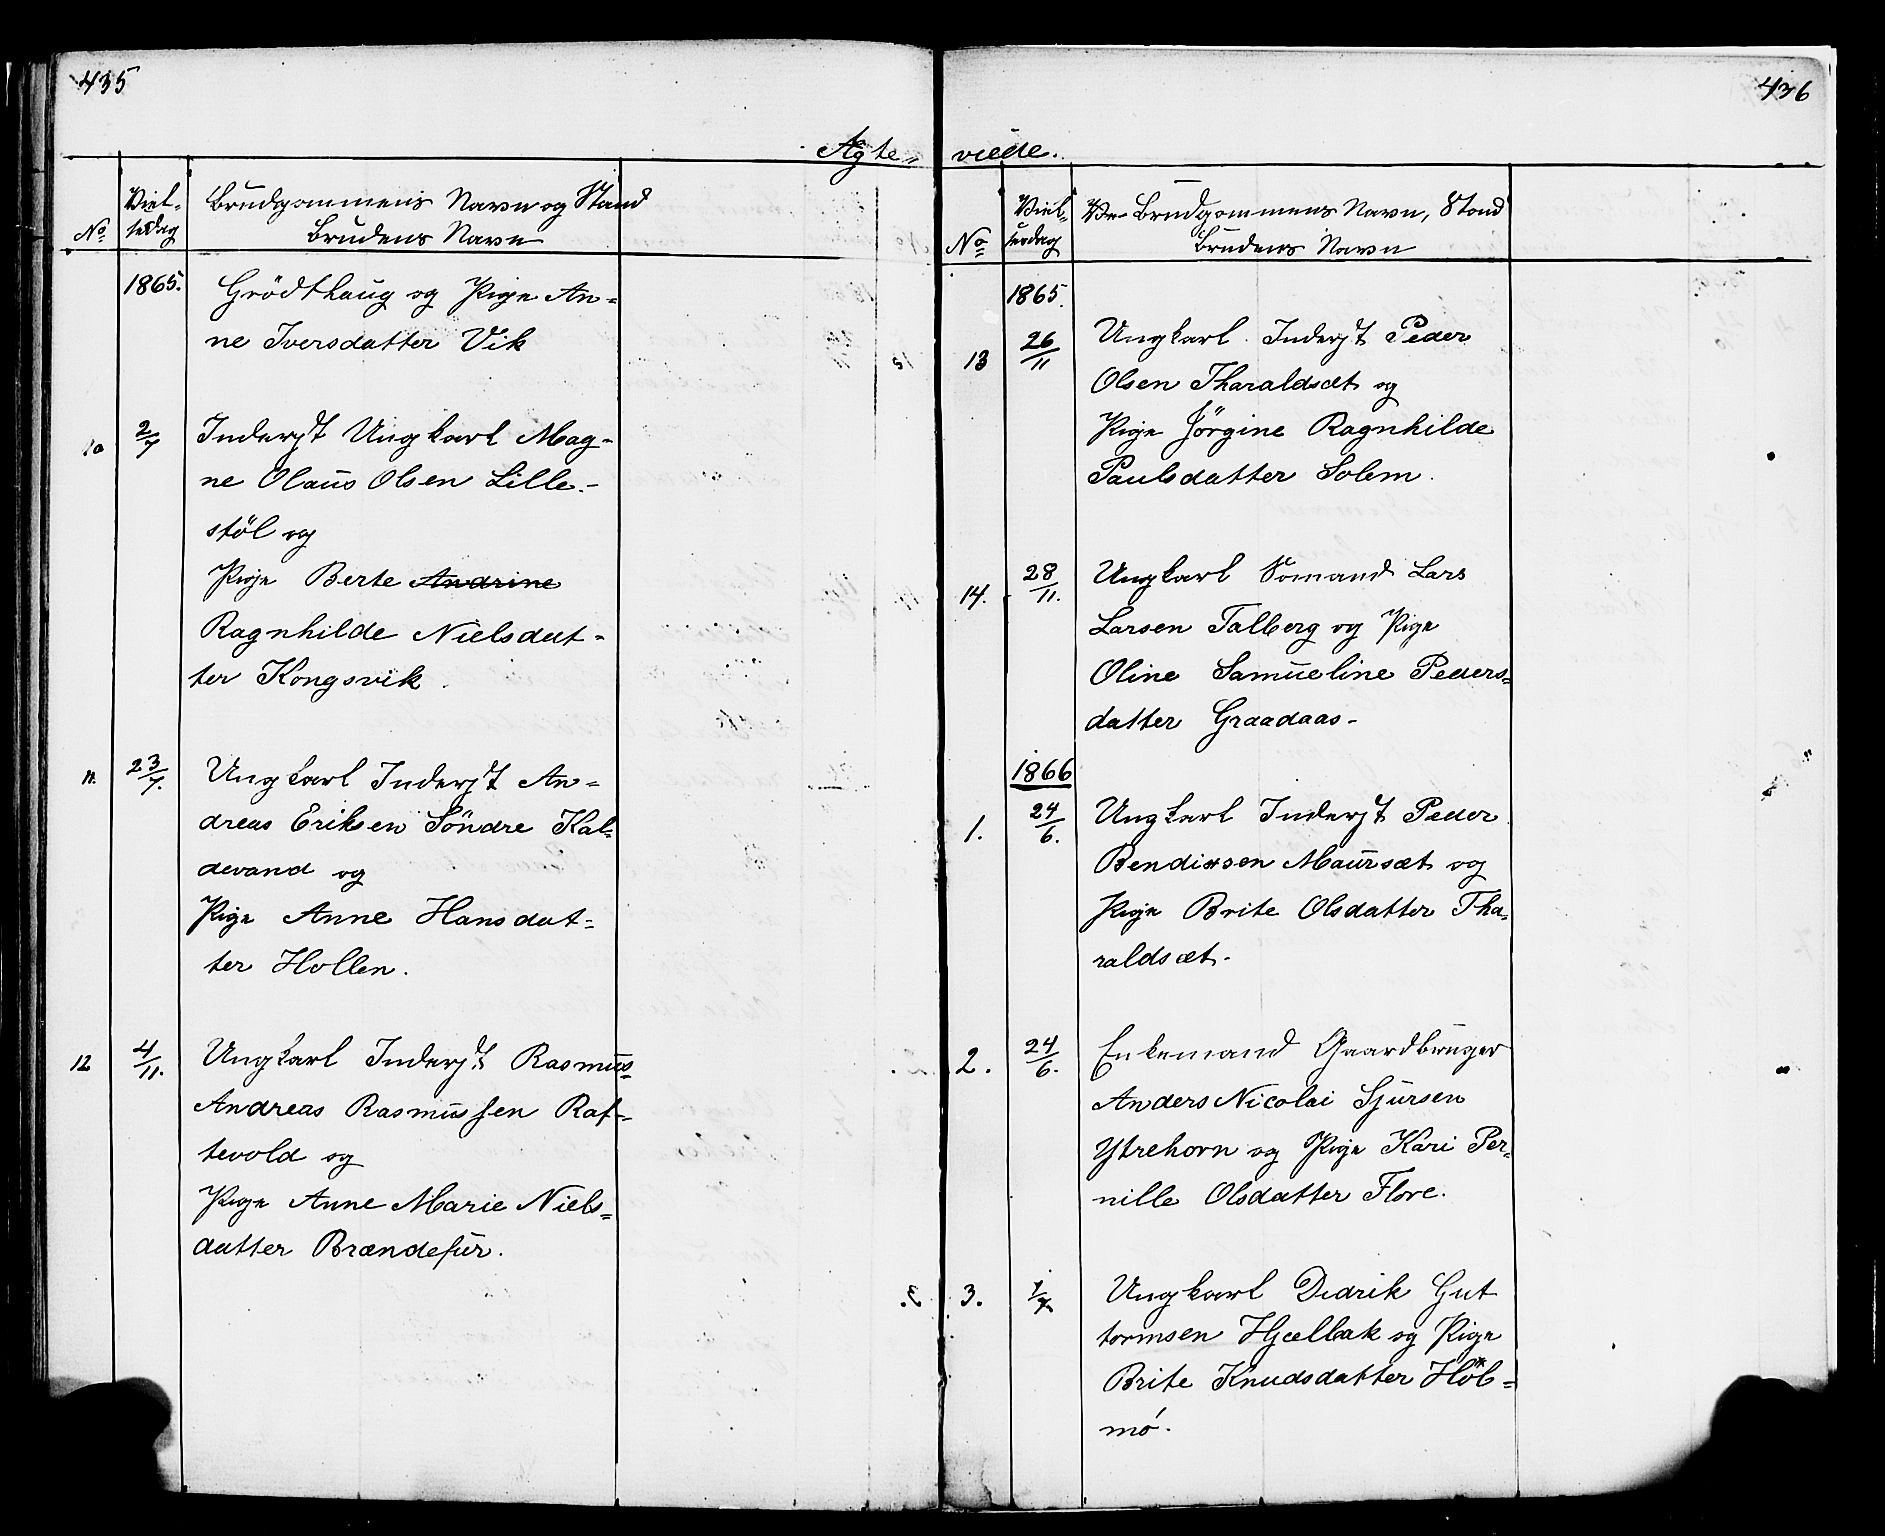 435
Ægte-
No
Viel-
sesdag
Brudgommens Navn og Stand
Brudens Navn
1865.
Grödthaug og Pige An-
ne Iversdatter Vik
10
2/7
Inderst Ungkarl Mag-
ne Olaus Olsen Lille-
stöl og
Pige Berte Andrine
Ragnhilde Nielsdat-
ter Kongsvik.
11.
23/7.
Ungkarl Inderst An-
dreas Eriksen Söndre Kal-
devand og
Pige Anne Hansdat-
ter Hollen.
12
4/11.
Ungkarl Inderst Rasmus
Andreas Rasmussen Raf-
tevold og
Pige Anne Marie Niels-
datter Brændefur.
436
viede.
No
Viel-
sesdag
Brudgommens Navn, Stand
Brudens Navn
1865.
13
26/11
Ungkarl Inderst Peder
Olsen Tharaldsæt og
Pige Jörgine Ragnhilde
Paulsdatter Solem.
14.
28/11.
Ungkarl Sömand Lars
Larsen Talberg og Pige
Oline Samueline Peders-
datter Graadaas-
1866
1.
24/6.
Ungkarl Inderst Peder
Bendixsen Maursæt og
Pige Brite Olsdatter Tha-
raldsæt.
2.
24/6.
Enkemand Gaardbruger
Anders Nicolai Sjursen
Ytrehorn og Pige Kari Per-
nille Olsdatter Flore.
3.
1/7
Ungkarl Didrik Gut
tormsen Hjælbak og Pige
Brite Knudsdatter Hol-
mö.